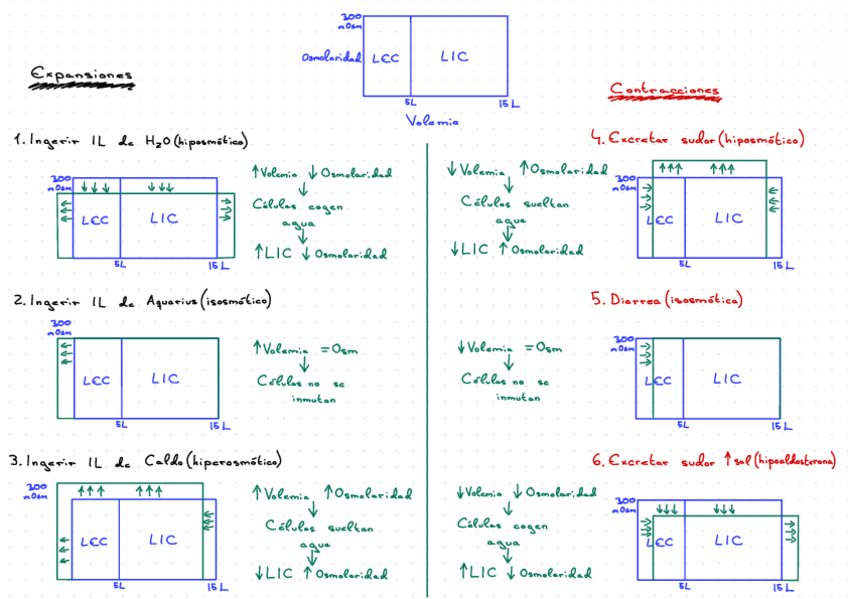 300
mOsm
Osmolaridad
LEC
LIC
5L
15 L
Volemia
Expansiones
1. Ingerir 1L de H2O (hiposmótico)
300
mOsm
LEC
LIC
5L
15 L
↑Volemia ↓ Osmolaridad
↓
Células cogen
agua
↓
↑LIC ↓ Osmolaridad
2. Ingerir 1L de Aquarius (isosmótico)
300
mOsm
LEC
LIC
5L
15 L
↑Volemia = Osm
↓
Células no se
inmutan
3. Ingerir 1L de Caldo (hiperosmótico)
300
mOsm
LEC
LIC
5L
15 L
↑Volemia ↑Osmolaridad
↓
Células sueltan
agua
↓
↓LIC ↑ Osmolaridad
Contracciones
4. Excretar sudor (hiposmótico)
↓Volemia ↑Osmolaridad
↓
Células sueltan
agua
↓
↓LIC ↑ Osmolaridad
300
mOsm
LEC
LIC
5L
15 L
5. Diarrea (isosmótica)
↓Volemia = Osm
↓
Células no se
inmutan
300
mOsm
LEC
LIC
5L
15 L
6. Excretar sudor ↑sal (hipoaldosterona)
↓Volemia ↓ Osmolaridad
↓
Células cogen
agua
↓
↑LIC ↓ Osmolaridad
300
mOsm
LEC
LIC
5L
15 L